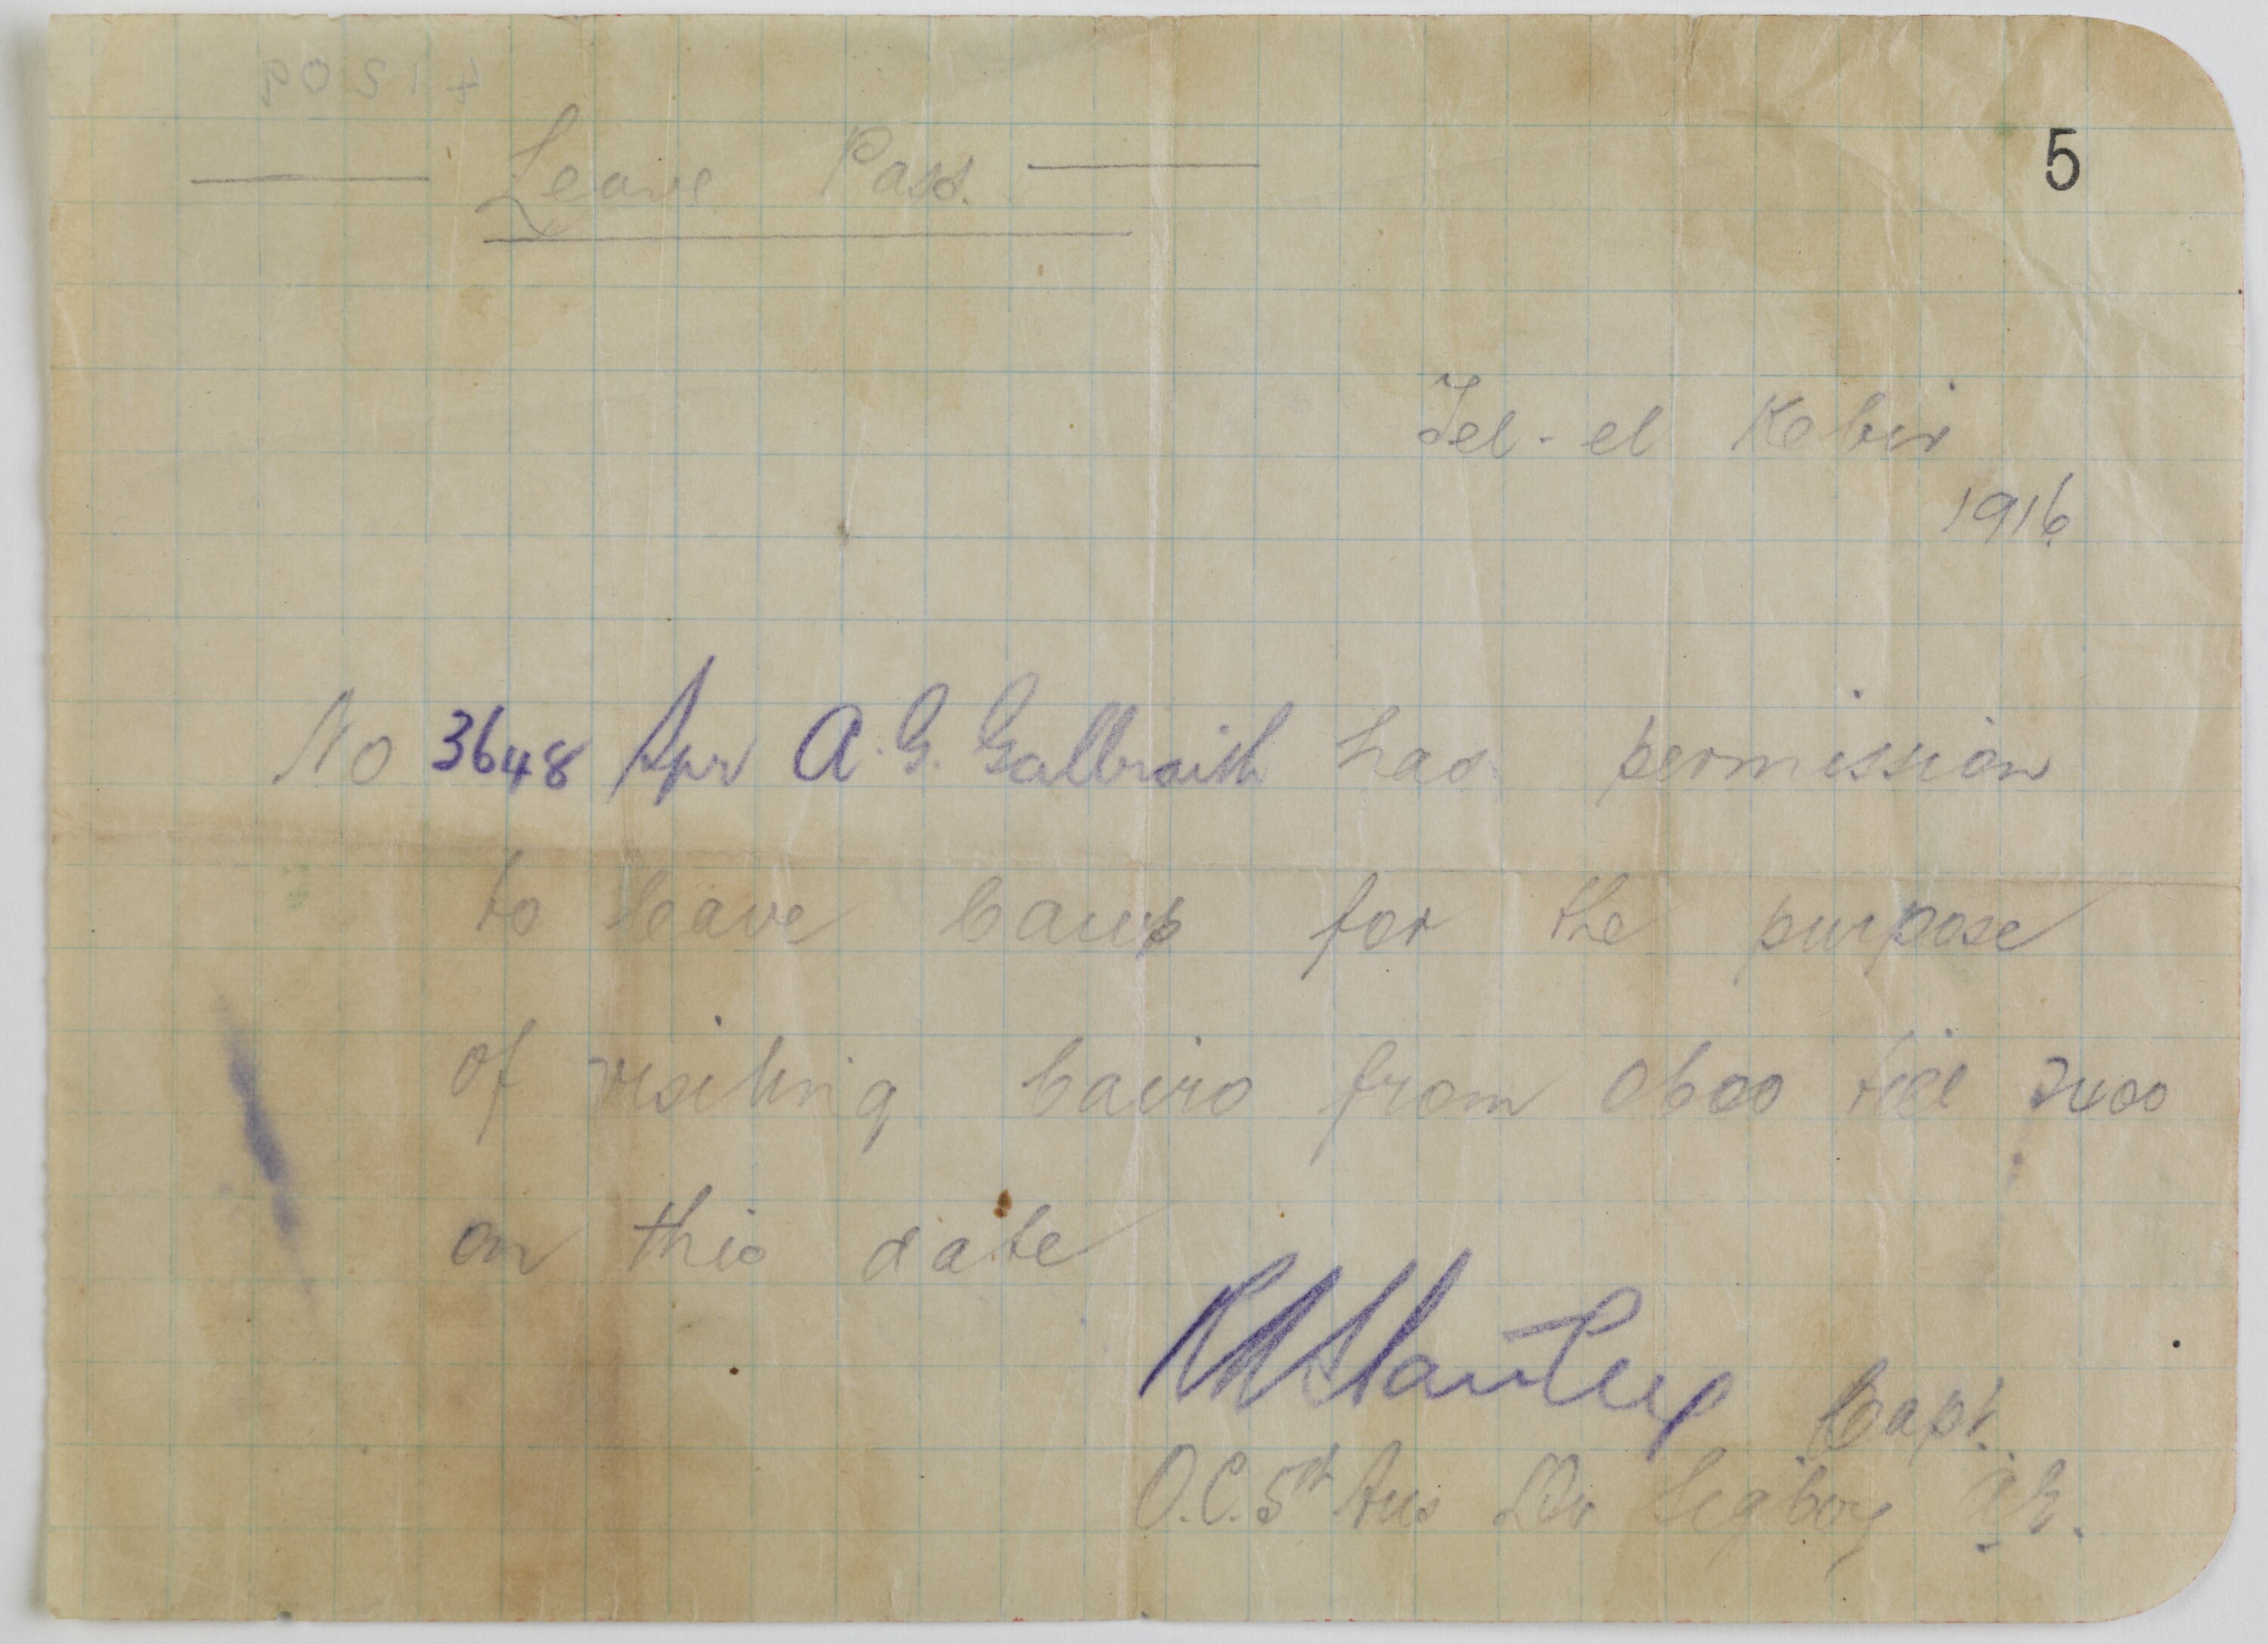 Leave Pass.
5
Tel-el Kebir
1916
No 3648 Spr A.G. Galbraith has permission
to leave Camp for the purpose
of visiting Cairo from 0600 till 2400
on this date
Capt.
O.C. 5th Aus Div Sig Coy